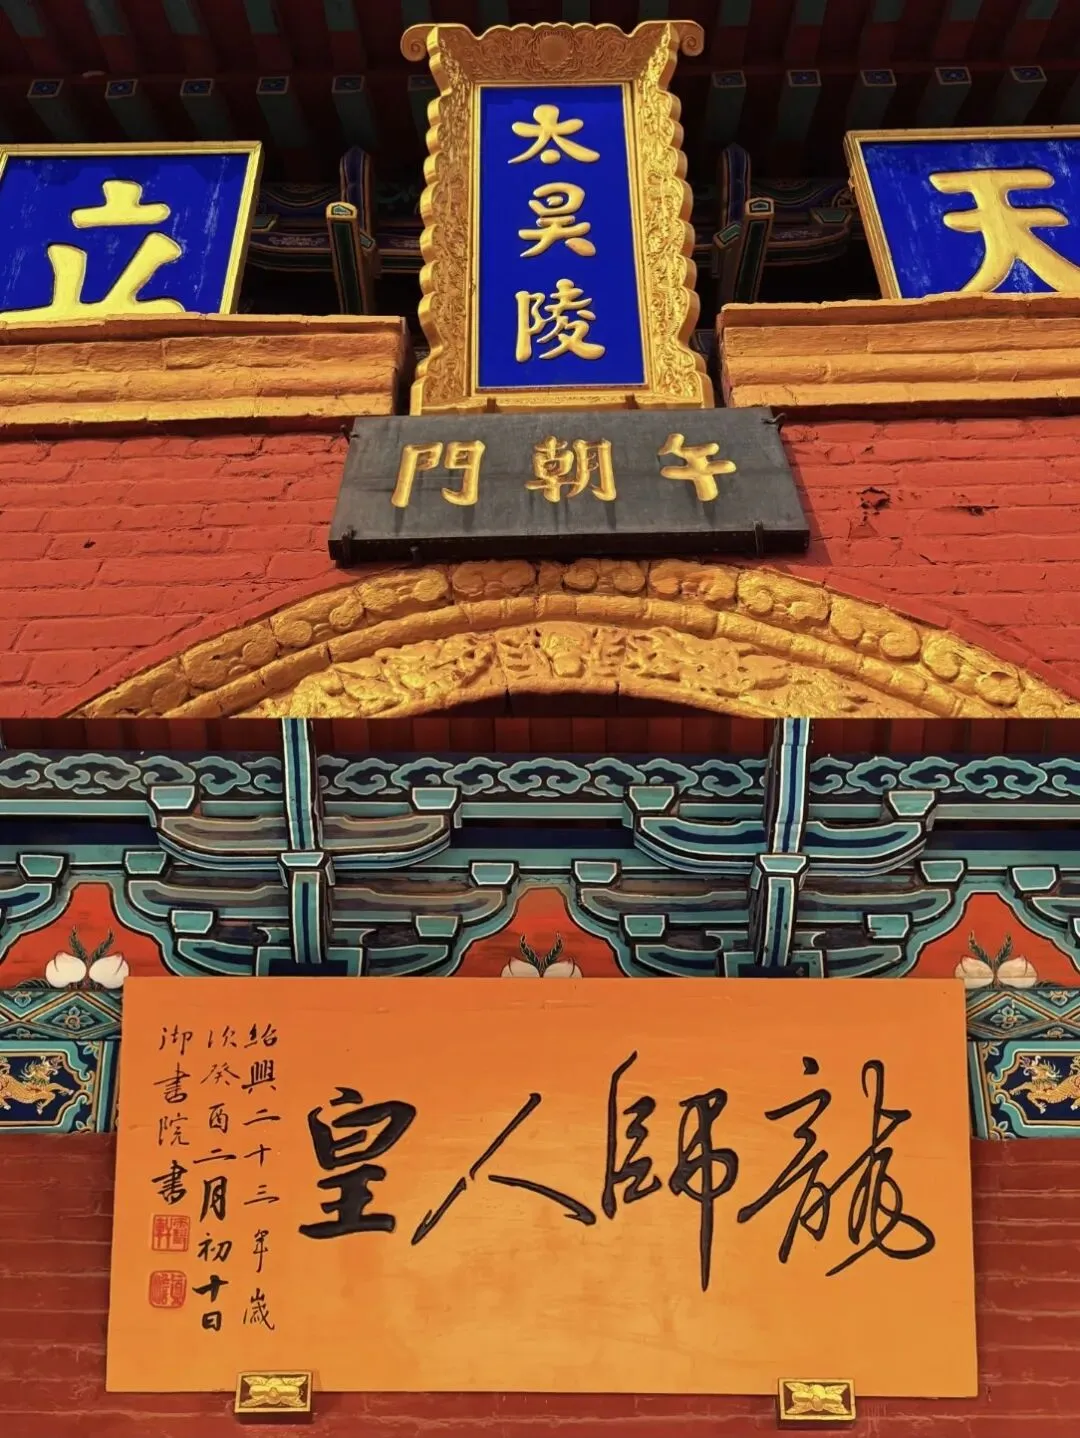 天
太昊陵
立
午朝門
龍師人皇
紹興二十三年歲
次癸酉二月初十日
御書院書